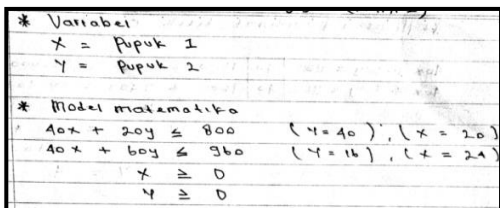 * Variabel
X = Pupuk 1
Y = Pupuk 2
* Model matematika
40x + 20y ≤ 800 (Y=40), (X = 20)
40x + 60y ≤ 960 (Y=16), (X = 24)
X ≥ 0
Y ≥ 0